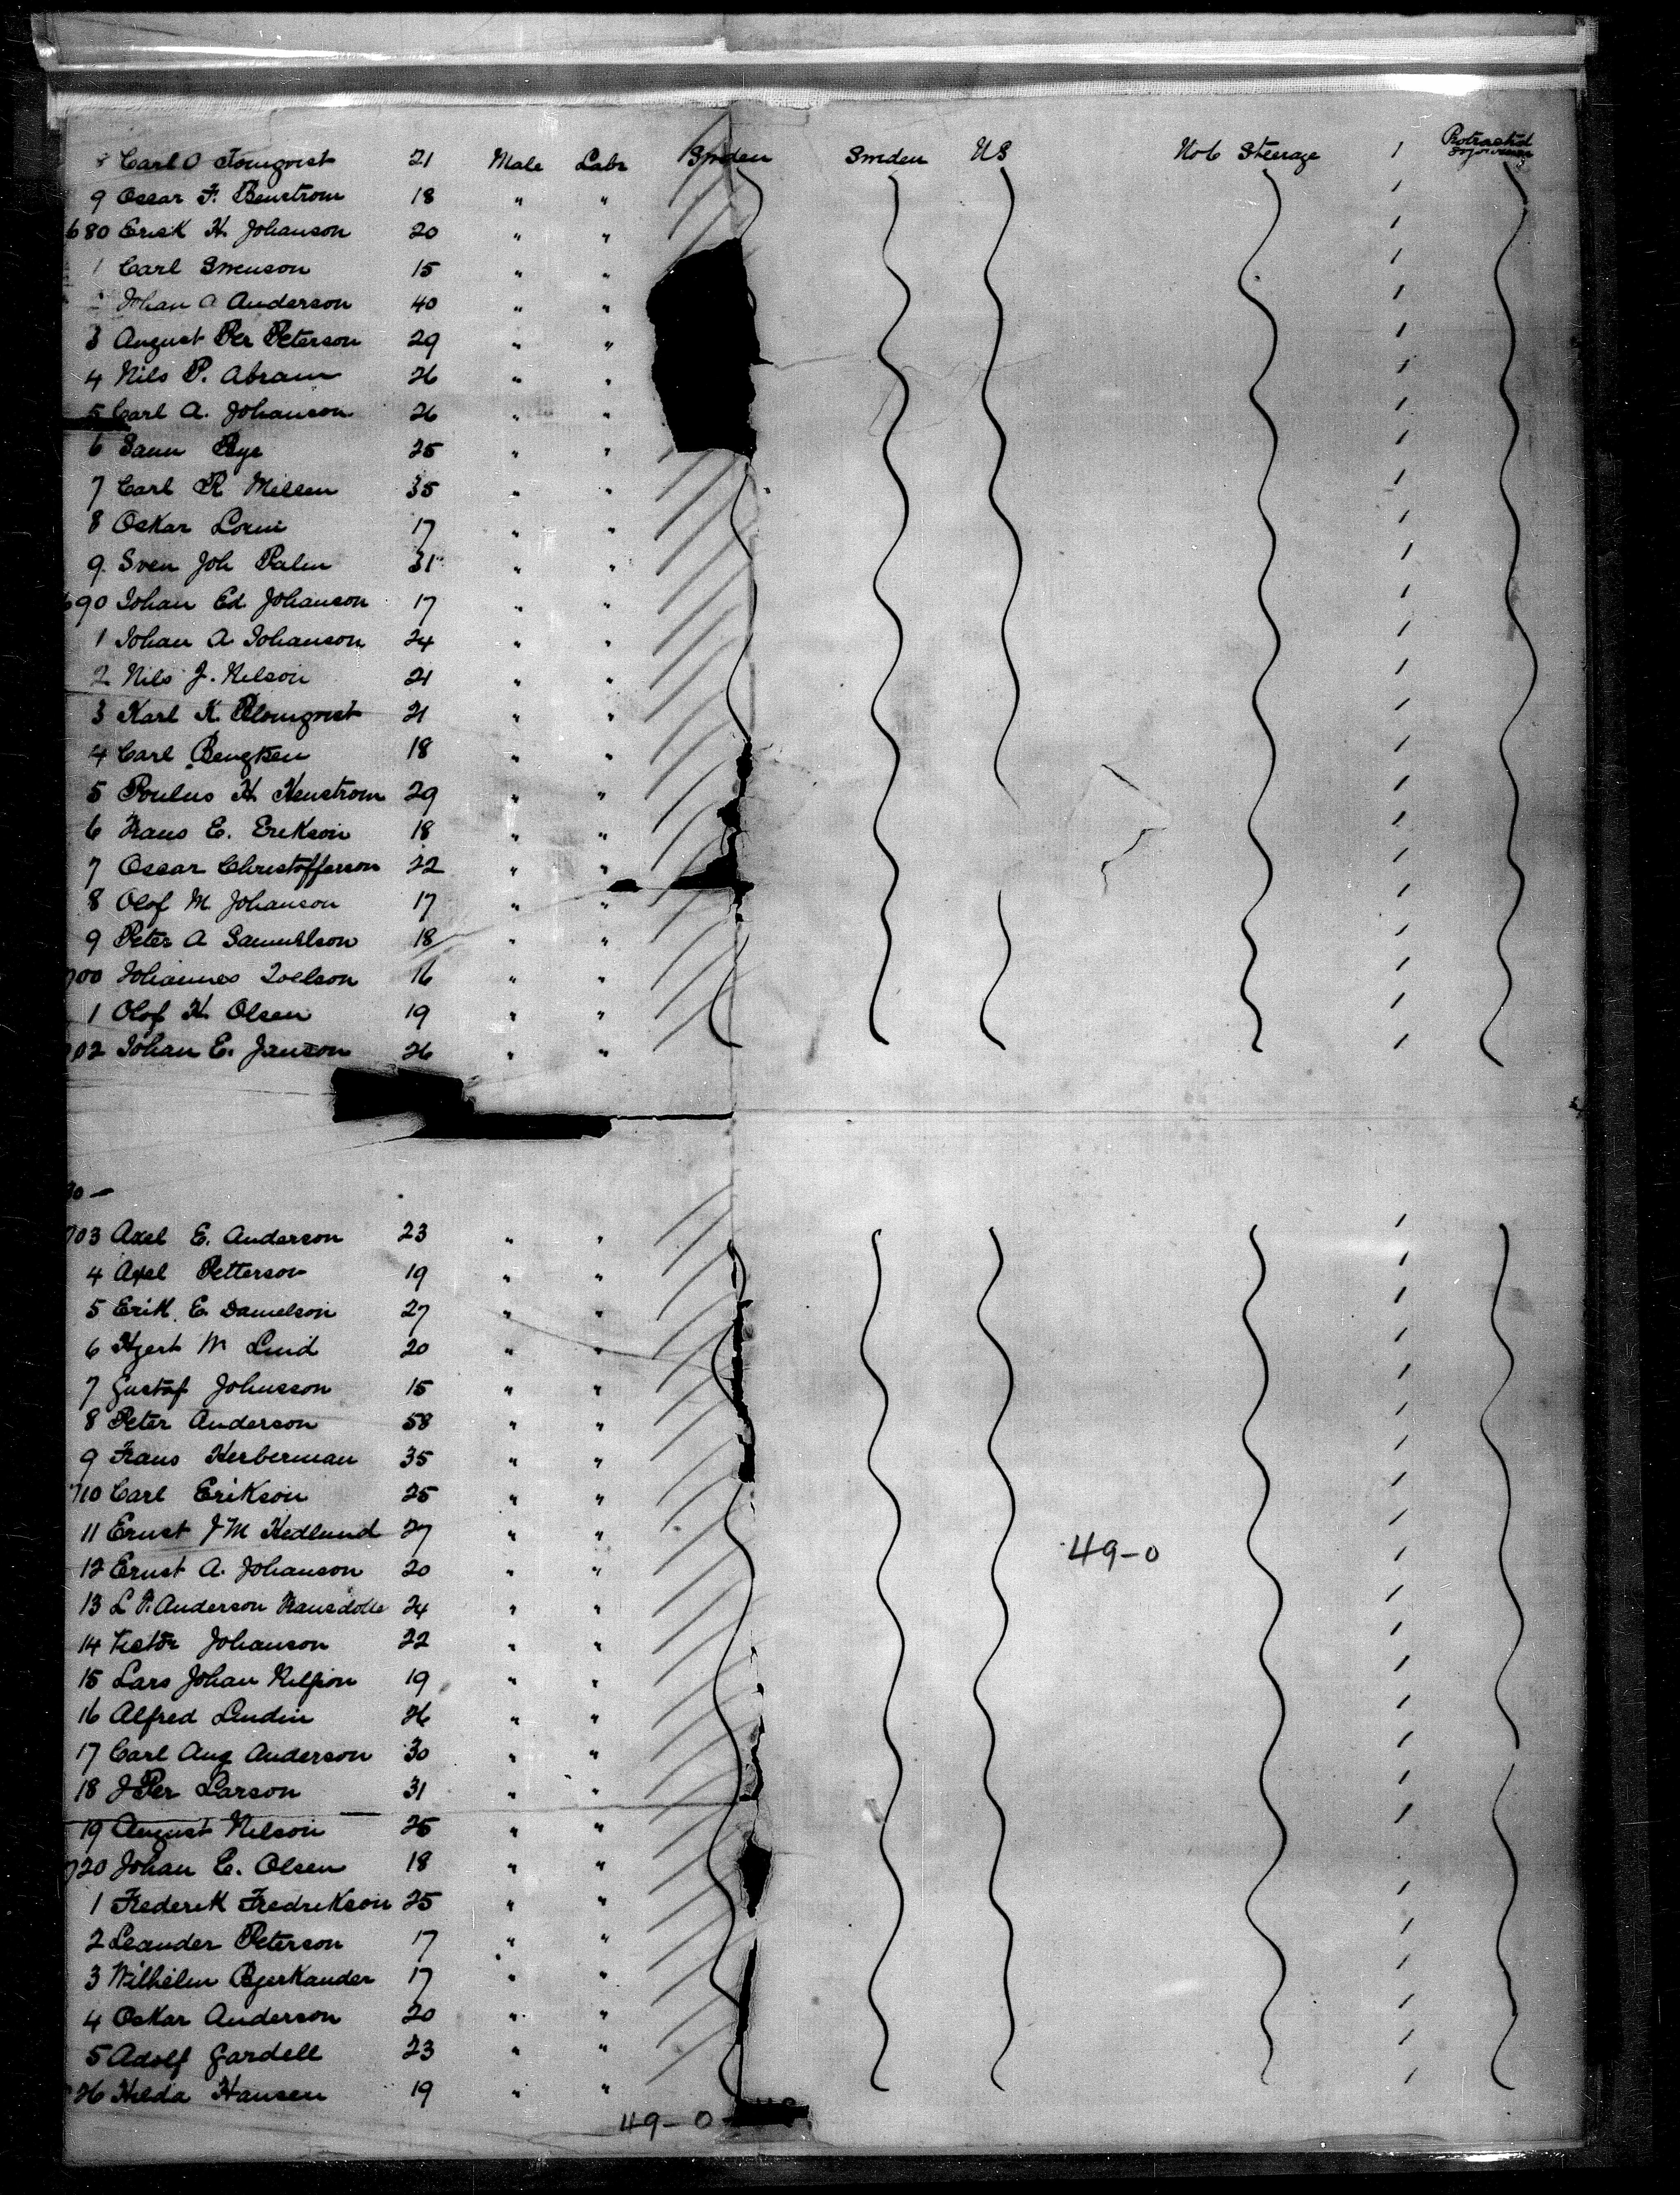 8 Carl O Tomqvist 21 Male Labr Sweden Sweden US No 6 Steerage / Protracted sojourner
9 Oscar F. Benstrom 18 " " /
680 Erick H. Johanson 20 " " /
1 Carl Swenson 15 " " /
2 Johan A Anderson 40 " " /
3 August Per Peterson 29 " " /
4 Nils P. Abram 26 " " /
5 Carl A. Johanson 26 " " /
6 25 " " /
7 Carl R Millen 35 " " /
8 Oskar 17 " " /
9 Sven Joh Palm 31 " " /
690 Johan Ed Johanson 17 " " /
1 Johan A Johanson 24 " " /
2 Nils J. Nelson 21 " " /
3 Karl K. Blomqvist 21 " " /
4 Carl Bengtsen 18 " " /
5 Poulus H. Henstrom 29 " " /
6 Frans E. Erikson 18 " " /
7 Oscar Christofferson 22 " " /
8 Olof M Johanson 17 " " /
9 Peter A Samuelson 18 " " /
700 Johannes 16 " " /
1 Olof H. Olsen 19 " " /
702 Johan E. Janson 26 " " /
30 —
703 Axel E. Anderson 23 " " /
4 Axel Petterson 19 " " /
5 Erik E. Danielson 27 " " /
6 Hjert M Lind 20 " " /
7 Gustaf Johnsson 15 " " /
8 Peter Anderson 58 " " /
9 Frans Herberman 35 " " /
710 Carl Erikson 25 " " /
11 Ernst J M Hedlund 27 " " /
49-0
12 Ernst A. Johanson 20 " " /
13 L P. Anderson Fransdotte 24 " " /
14 Victor Johanson 22 " " /
15 Lars Johan Nilsson 19 " " /
16 Alfred Lindin 26 " " /
17 Carl Aug Anderson 30 " " /
18 J Per Larson 31 " " /
19 August Nelson 25 " " /
720 Johan E. Olsen 18 " "
1 Frederik Fredrikson 25 " " /
2 Leander Peterson 17 " " /
3 Wilhelm Bjerkander 17 " " /
4 Oskar Anderson 20 " " /
5 Adolf Gardell 23 " " /
26 Hilda Hansen 19 " " /
49-0